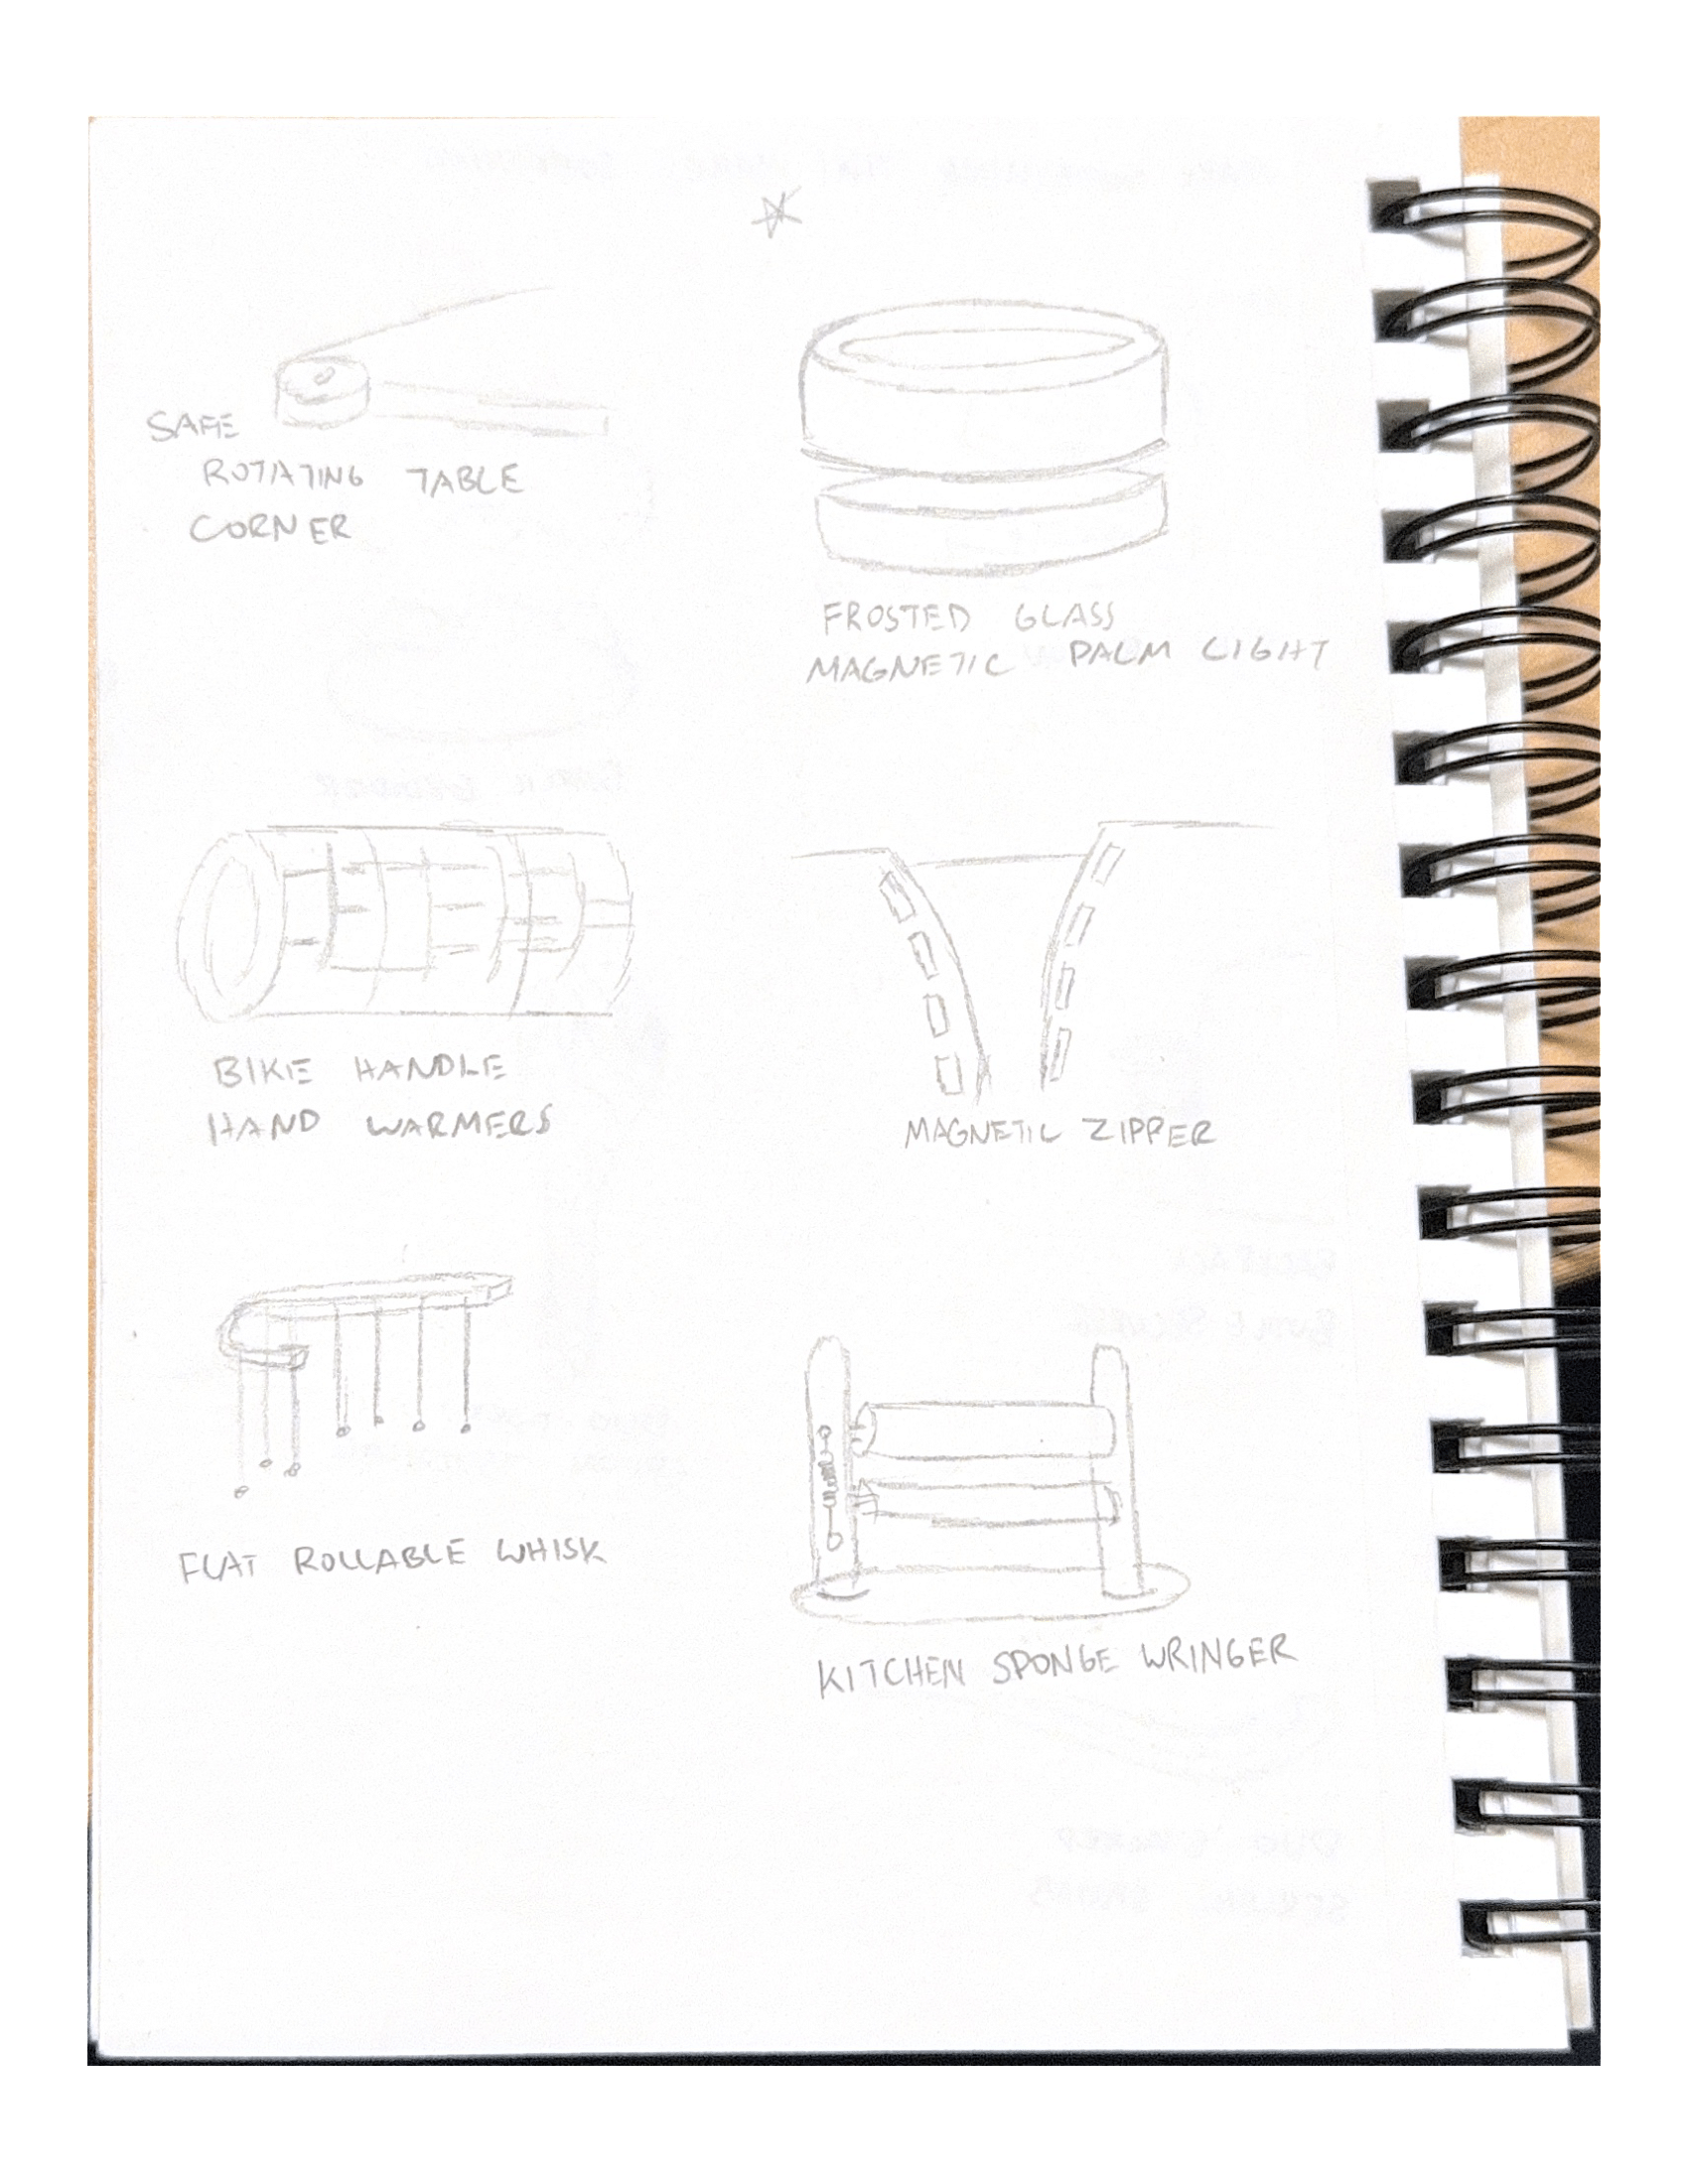 SAFE
ROTATING TABLE
CORNER
FROSTED GLASS
MAGNETIC PALM LIGHT
BIKE HANDLE
HAND WARMERS
MAGNETIC ZIPPER
FLAT ROLLABLE WHISK
KITCHEN SPONGE WRINGER